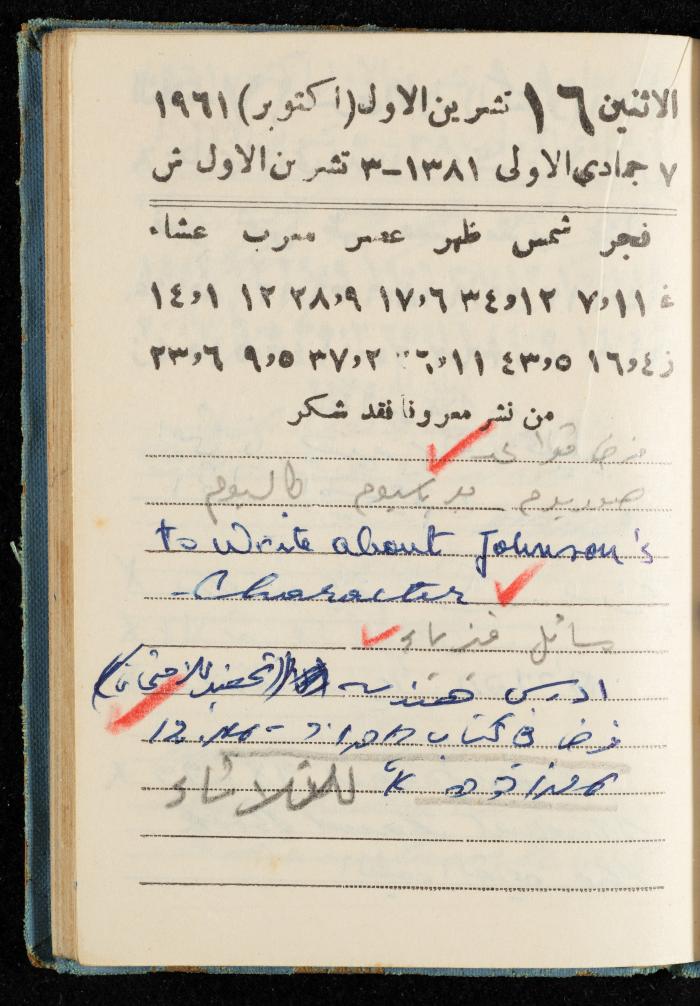 الاثنين ١٦ تشرين الاول (اكتوبر) ١٩٦١
٧ جمادي الاولى ١٣٨١-٣ تشرين الاول ش
فجر شمس ظهر عصر مغرب عشاء
غ ١١و٧ ١٢و٣٤ ٦و١٧ ٩و٢٨ ١٢ ١و١٤
ز ٤و١٦ ٥و٤٣ ١١و٢٦ ٢و٣٧ ٥و٩ ٦و٢٣
من نشر معروفا فقد شكر
فرض قواعد
صوديوم بوتاسيوم كالسيوم
to Write about Johnson's
- Character
مسائل فيزياء
ادرس هندسة (التحضير للامتحان)
فرض في كتاب
للثلاثاء